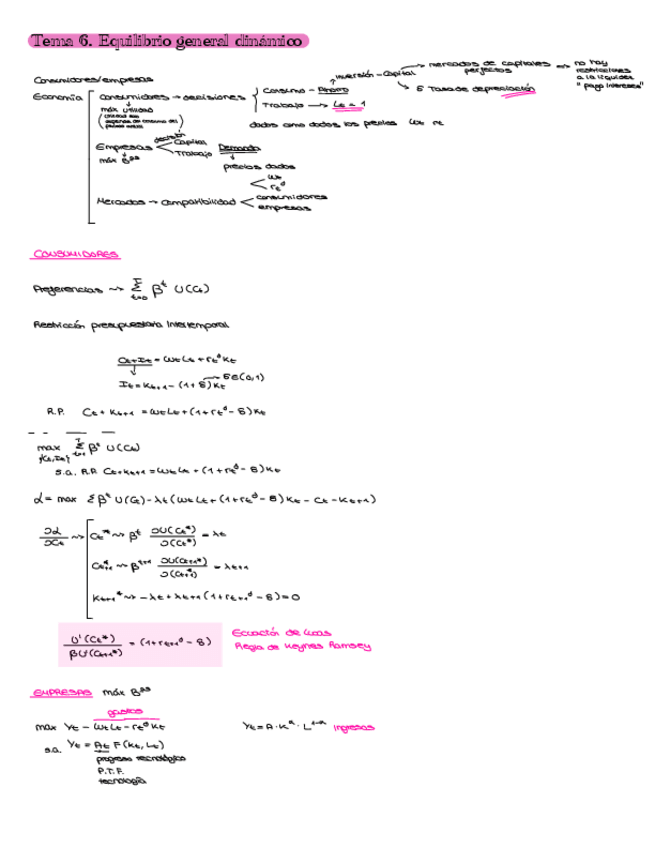 Tema 6. Equilibrio general dinámico
Consumidores/empresas
Economía
Consumidores → decisiones
Consumo - Ahorro
inversión - Capital
mercados de capitales perfectos
no hay restricciones a la liquidez
" pago intereses"
δ Tasa de depreciación
Trabajo → Lt = 1
máx utilidad
dados como dados los precios wt rt
Empresas
decisión
Capital
Trabajo
Demanda
máx Bºs
precios dados
wt
rt^d
Mercados → Compatibilidad
consumidores
empresas
CONSUMIDORES
Preferencias ~> Σ t=0 T β^t U(Ct)
Restricción presupuestaria intertemporal
Ct+It = wtLt + rt^d Kt
It = Kt+1 - (1+δ)Kt
δ∈(0,1)
R.P. Ct + Kt+1 = wtLt + (1+rt^d - δ)Kt
max Σ β^t U(Ct)
{Ct, It}
s.a. R.P. Ct+Kt+1 = wtLt + (1+rt^d - δ)Kt
L = max Σβ^t U(Ct) - λt(wtLt + (1+rt^d - δ)Kt - Ct - Kt+1)
∂L/∂Ct ~>
Ct* ~> β^t ∂U(Ct*)/∂(Ct*) = λt
Ct+1* ~> β^t+1 ∂U(Ct+1*)/∂(Ct+1*) = λt+1
Kt+1* ~> -λt + λt+1 (1+rt+1^d - δ) = 0
U'(Ct*)/βU'(Ct+1*) = (1+rt+1^d - δ)
Ecuación de Lucas
Regla de Keynes Ramsey
EMPRESAS máx Bºs
gastos
max Yt - wtLt - rt^d Kt
Yt = A · K^α · L^1-α ingresos
s.a. Yt = At F(Kt, Lt)
progreso tecnológico
P.T.F.
tecnología